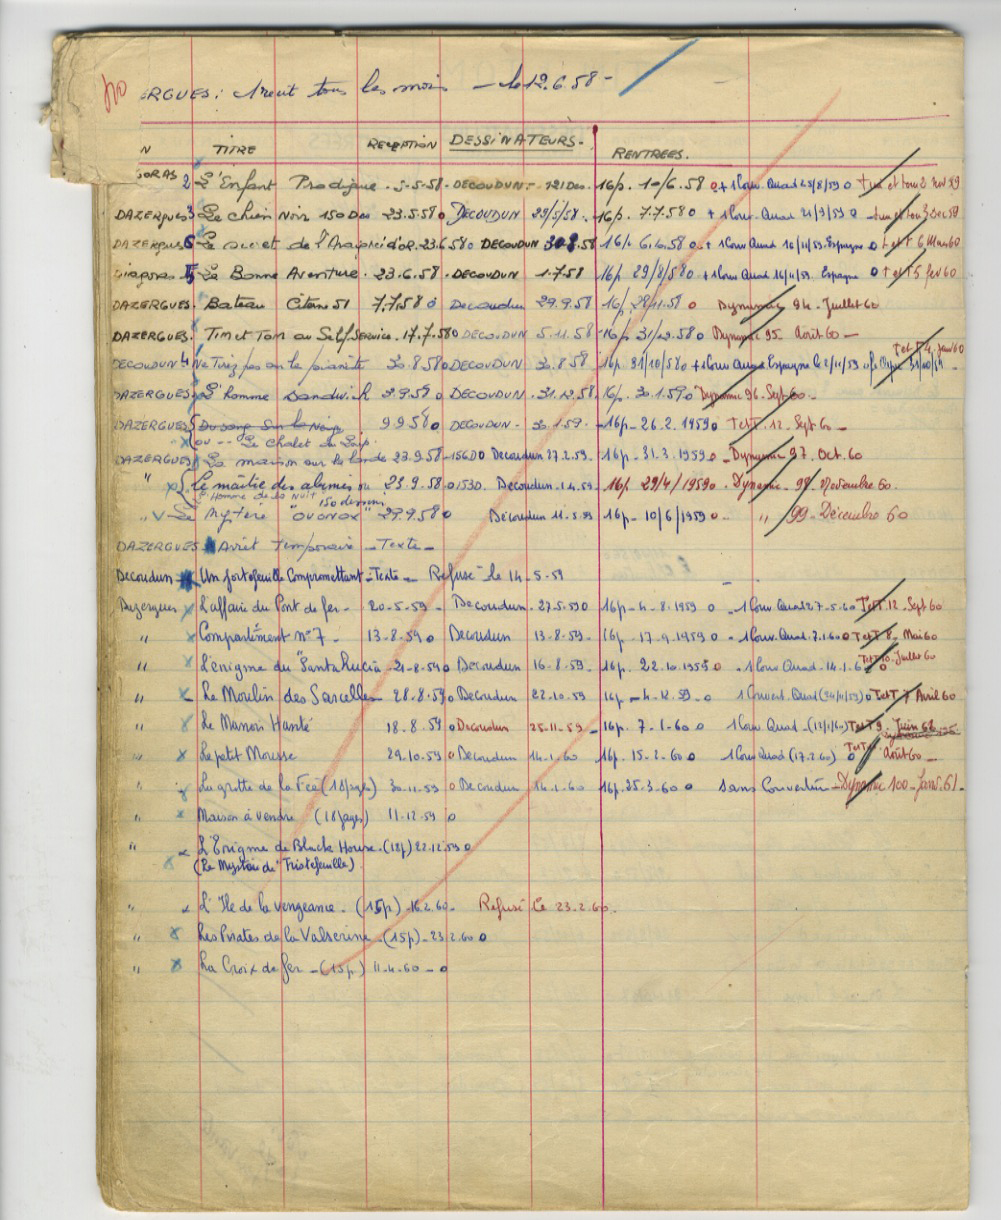 NO
RGUES: 1 récit tous les mois - le 12.6.58 -
N TITRE RECEPTION DESSINATEURS. RENTREES.
GORAS 2 L'Enfant Prodigue. 5-5-58. DECOUDUN 121 Des. 16p. 1-0/6.58 o + 1 Couv. Quad 25/8/59 o Tim et Tom 2 nov 59
DAZERGUES 3 Le chien Noir 150 Des 23.5.58 o DECOUDUN 29/5/58. 16p. 7.7.58 o + 1 Couv. Quad 21/9/59 o Tim et Tom 3 Dec 59
DAZERGUES 6 Le secret de l' d'or. 23.6.58 o DECOUDUN 58 16p. 6.6.58 o + 1 Couv Quad 16/11/59. Espagne o T et T 6 Mars 60
Diagoras 5 La Bonne Aventure. 23.6.58 DECOUDUN 1.7.58 16p 29/8/58 o + 1 Couv Quad 16/11/59 Espagne o T et T 5 fev 60
DAZERGUES. Bateau Citerne 51 7.7.58 o Decoudun 29.9.58 16p. 28.11.58 o Dynamic 94. Juillet 60
DAZERGUES. Tim et Tom au Self Service. 17.7.58 o DECOUDUN 5.11.58 16p 31/12.58 o Dynamic 95. Août 60 -
DECOUDUN 4 Ne Tirez pas sur le pianiste 30.8.58 o DECOUDUN 30.8.58 16p 31/10/58 o + 1 Couv Quad Espagne le 2/11/59 o T et T 4. Janv 60
DAZERGUES L'homme Sandwich 2.9.59 o DECOUDUN. 31.12.58. 16p. 30.1.59 o Dynamic 96. Sept 60 -
DAZERGUES Du sang sur la Neige 9.9.58 o DECOUDUN - 30.1.59. -16p- 26.2.1959 o - T et T. 12. Sept 60 -
" x ou -- Le Chalet du Loup.
DAZERGUES La maison sur la lande 23.9.58 - 156D o Decoudun 27.2.59. 16p - 31.3.1959 o - Dynamic 97. Oct. 60
" x Le maître des abîmes ou 23.9.58 o 153D. Decoudun. 1.4.59. 16p. 29/4/1959 o. Dynamic - 98. Novembre 60.
l'Homme de la Nuit 150 dessins
" v Le Mystère "OVONOX" 29.9.58 o Decoudun 11.5.59 16p - 10/6/1959 o - " 99 - Décembre 60
DAZERGUES Arrêt Temporaire - Texte -
Decoudun Un portefeuille Compromettant - Texte - Refusé le 14-5-59
Dazergues x L'affaire du Pont de fer. 20-5-59 - Decoudun - 27.5.59 o 16p - 4-8-1959 o - 1 Couv Quad 27-5-60 T et T. 12 - Sept 60
" x Compartiment n°7 - 13-8-59 o Decoudun 13-8-59 - 16p - 17.9.1959 o - 1 Couv. Quad. 7.1.60 o T et T. 8. Mai 60
" x L'énigme du "Santa Lucia - 21-8-59 o Decoudun 16-8-59. 16p. 22.10.1959 o - 1 Couv Quad. 14.1.60 o T et T 10. Juillet 60
" x Le Moulin des Sarcelles 28.8.59 o Decoudun 22.10.59 16p - 4-12.59 - o 1 Couvert. Quad (24/11/59) o T et T 7 Avril 60
" x Le Manoir Hanté 18.8.59 o Decoudun 25-11-59 - 16p. 7-1-60 o 1 Couv Quad - (12/1/60) T et T 9. Juin
" x Le petit Mousse 29.10.59 o Decoudun 14-1-60 16p. 15-2.60 o 1 Couv Quad (17.2.60) o T et T 11 Août 60 -
" x La grotte de la Fée (18 pages) 30-11-59 o Decoudun 14-1-60 16p. 25-3-60 o Sans Couverture - Dynamic 100 - Janv. 61 -
" x Maison à vendre (18 pages) 11-12-59 o
" x L'Enigme de Black House. (18p) 22.12.59 o
x (Le Mystère de Tristefeuille)
" x L'Ile de la vengeance. (15p) - 16.2.60. Refusé le 23.2.60.
" x Les Pirates de la Valserine - (15p) - 23.2.60 o
" x La Croix de fer - (15p.) 11.4.60 - o